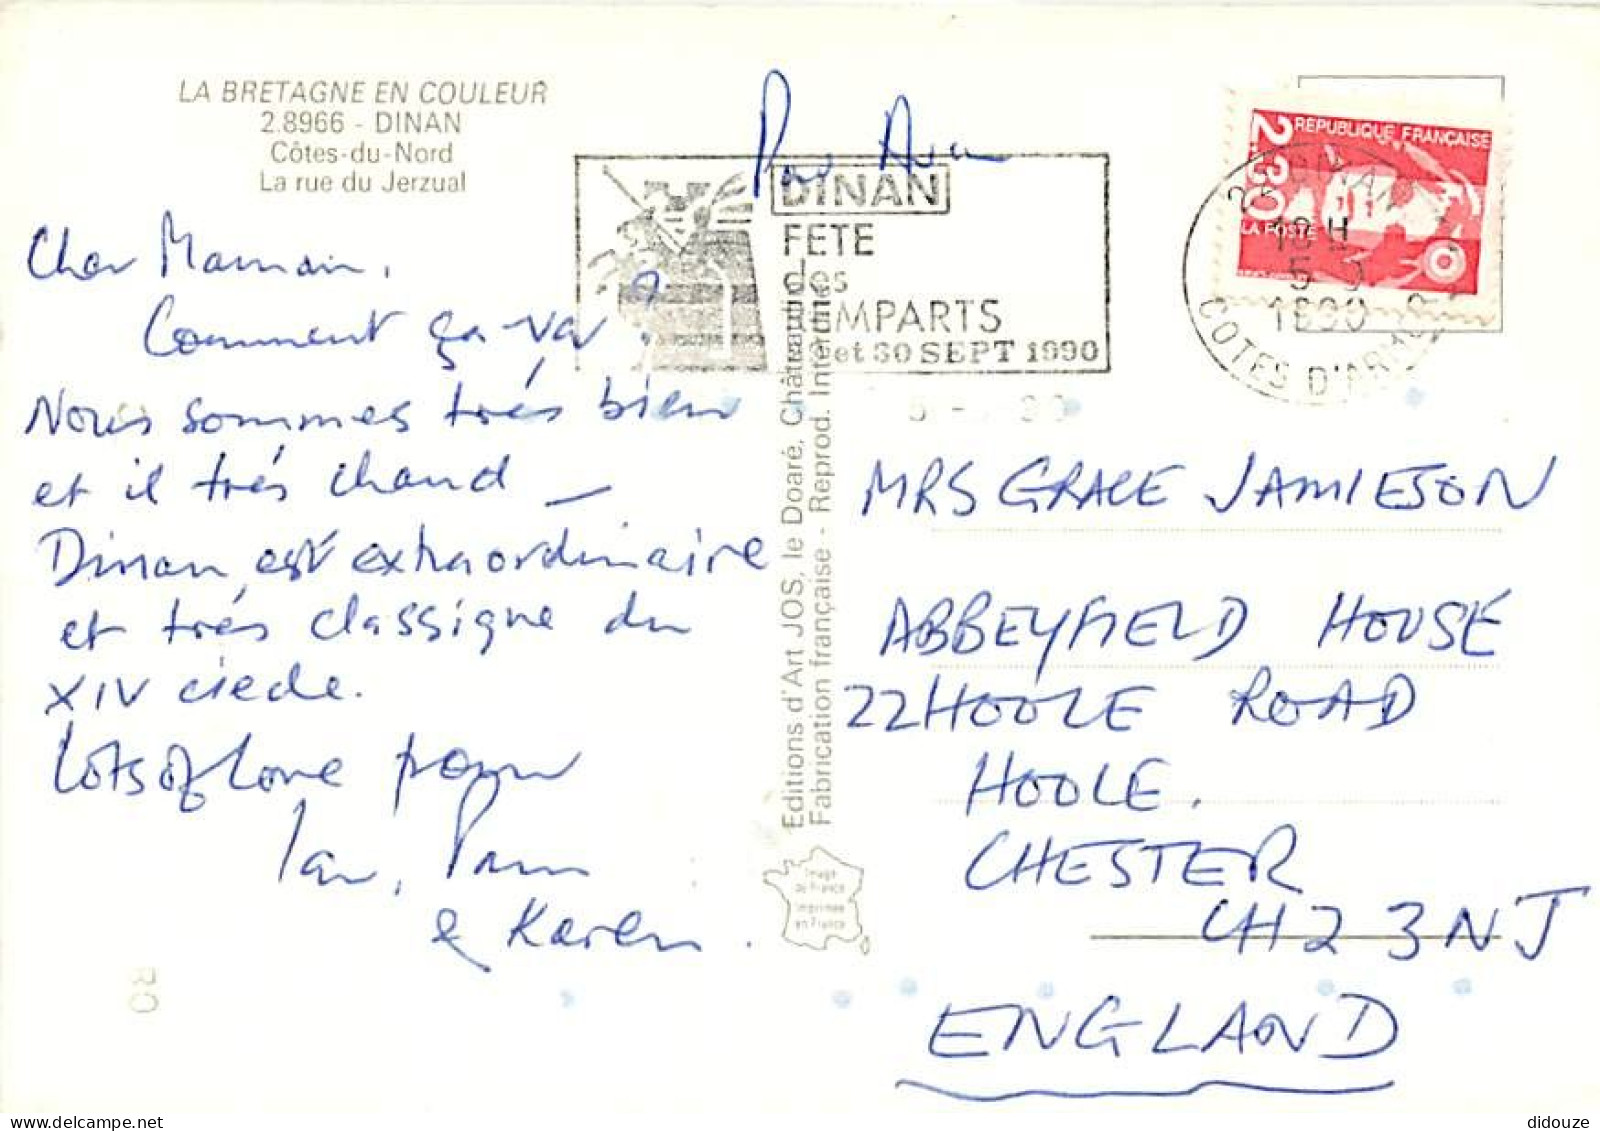 LA BRETAGNE EN COULEUR
2.8966 - DINAN
Côtes-du-Nord
La rue du Jerzual
Par Avion
DINAN
FETE
des
REMPARTS
et 30 SEPT 1990
REPUBLIQUE FRANÇAISE
2.30
LA POSTE
DINAN
18 H
5 - 9
1990
COTES D'ARMOR
Cher Maman,
Comment ça-va?
Nous sommes trés bien
et il trés chaud —
Dinan est extraordinaire
et trés classique du
XIV ciecle.
Lots of Love from
Ian, Pam
& Karen.
Editions d'Art JOS, le Doaré, Châteaulin
Fabrication française - Reprod. Interdite
Image
de France
imprimée
en France
MRS GRACE JAMIESON
ABBEYFIELD HOUSE
22 HOOLE ROAD
HOOLE.
CHESTER
CH2 3NJ
ENGLAND
didouze